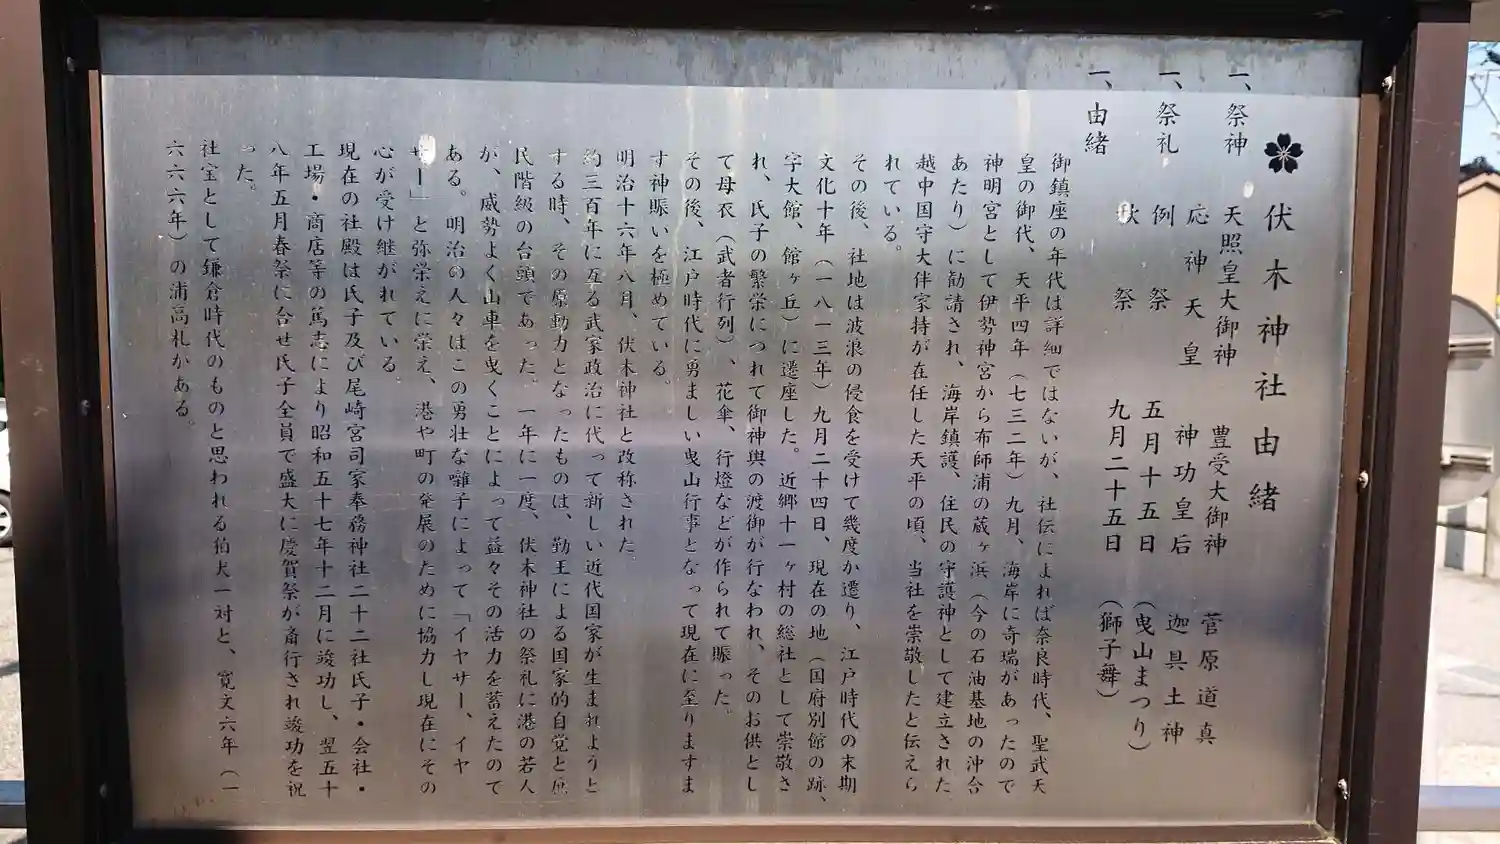 伏木神社由緒
一、祭神 天照皇大御神 豊受大御神 菅原道真
応神天皇 神功皇后 迦具土神
一、祭礼 例祭 五月十五日 (曳山まつり)
秋祭 九月二十五日 (獅子舞)
一、由緒
御鎮座の年代は詳細ではないが、社伝によれば奈良時代、聖武天
皇の御代、天平四年(七三二年)九月、海岸に奇瑞があったので
神明宮として伊勢神宮から布師浦の蔵ヶ浜(今の石油基地の沖合
あたり)に勧請され、海岸鎮護、住民の守護神として建立された。
越中国守大伴家持が在任した天平の頃、当社を崇敬したと伝えら
れている。
その後、社地は波浪の侵食を受けて幾度か遷り、江戸時代の末期
文化十年(一八一三年)九月二十四日、現在の地(国府別館の跡、
字大館、館ヶ丘)に遷座した。近郷十一ヶ村の総社として崇敬さ
れ、氏子の繁栄につれて御神輿の渡御が行なわれ、そのお供とし
て母衣(武者行列)、花傘、行燈などが作られて賑った。
その後、江戸時代に勇ましい曳山行事となって現在に至りますま
す神賑いを極めている。
明治十六年八月、伏木神社と改称された。
約三百年に亙る武家政治に代って新しい近代国家が生まれようと
する時、その原動力となったものは、勤王による国家的自覚と庶
民階級の台頭であった。一年に一度、伏木神社の祭礼に港の若人
が、威勢よく山車を曳くことによって益々その活力を蓄えたので
ある。明治の人々はこの勇壮な囃子によって「イヤサー、イヤ
サー」と弥栄えに栄え、港や町の発展のために協力し現在にその
心が受け継がれている。
現在の社殿は氏子及び尾崎宮司家奉務神社二十二社氏子・会社・
工場・商店等の篤志により昭和五十七年十二月に竣功し、翌五十
八年五月春祭に合せ氏子全員で盛大に慶賀祭が斎行され竣功を祝
った。
社宝として鎌倉時代のものと思われる狛犬一対と、寛文六年(一
六六六年)の浦高札がある。